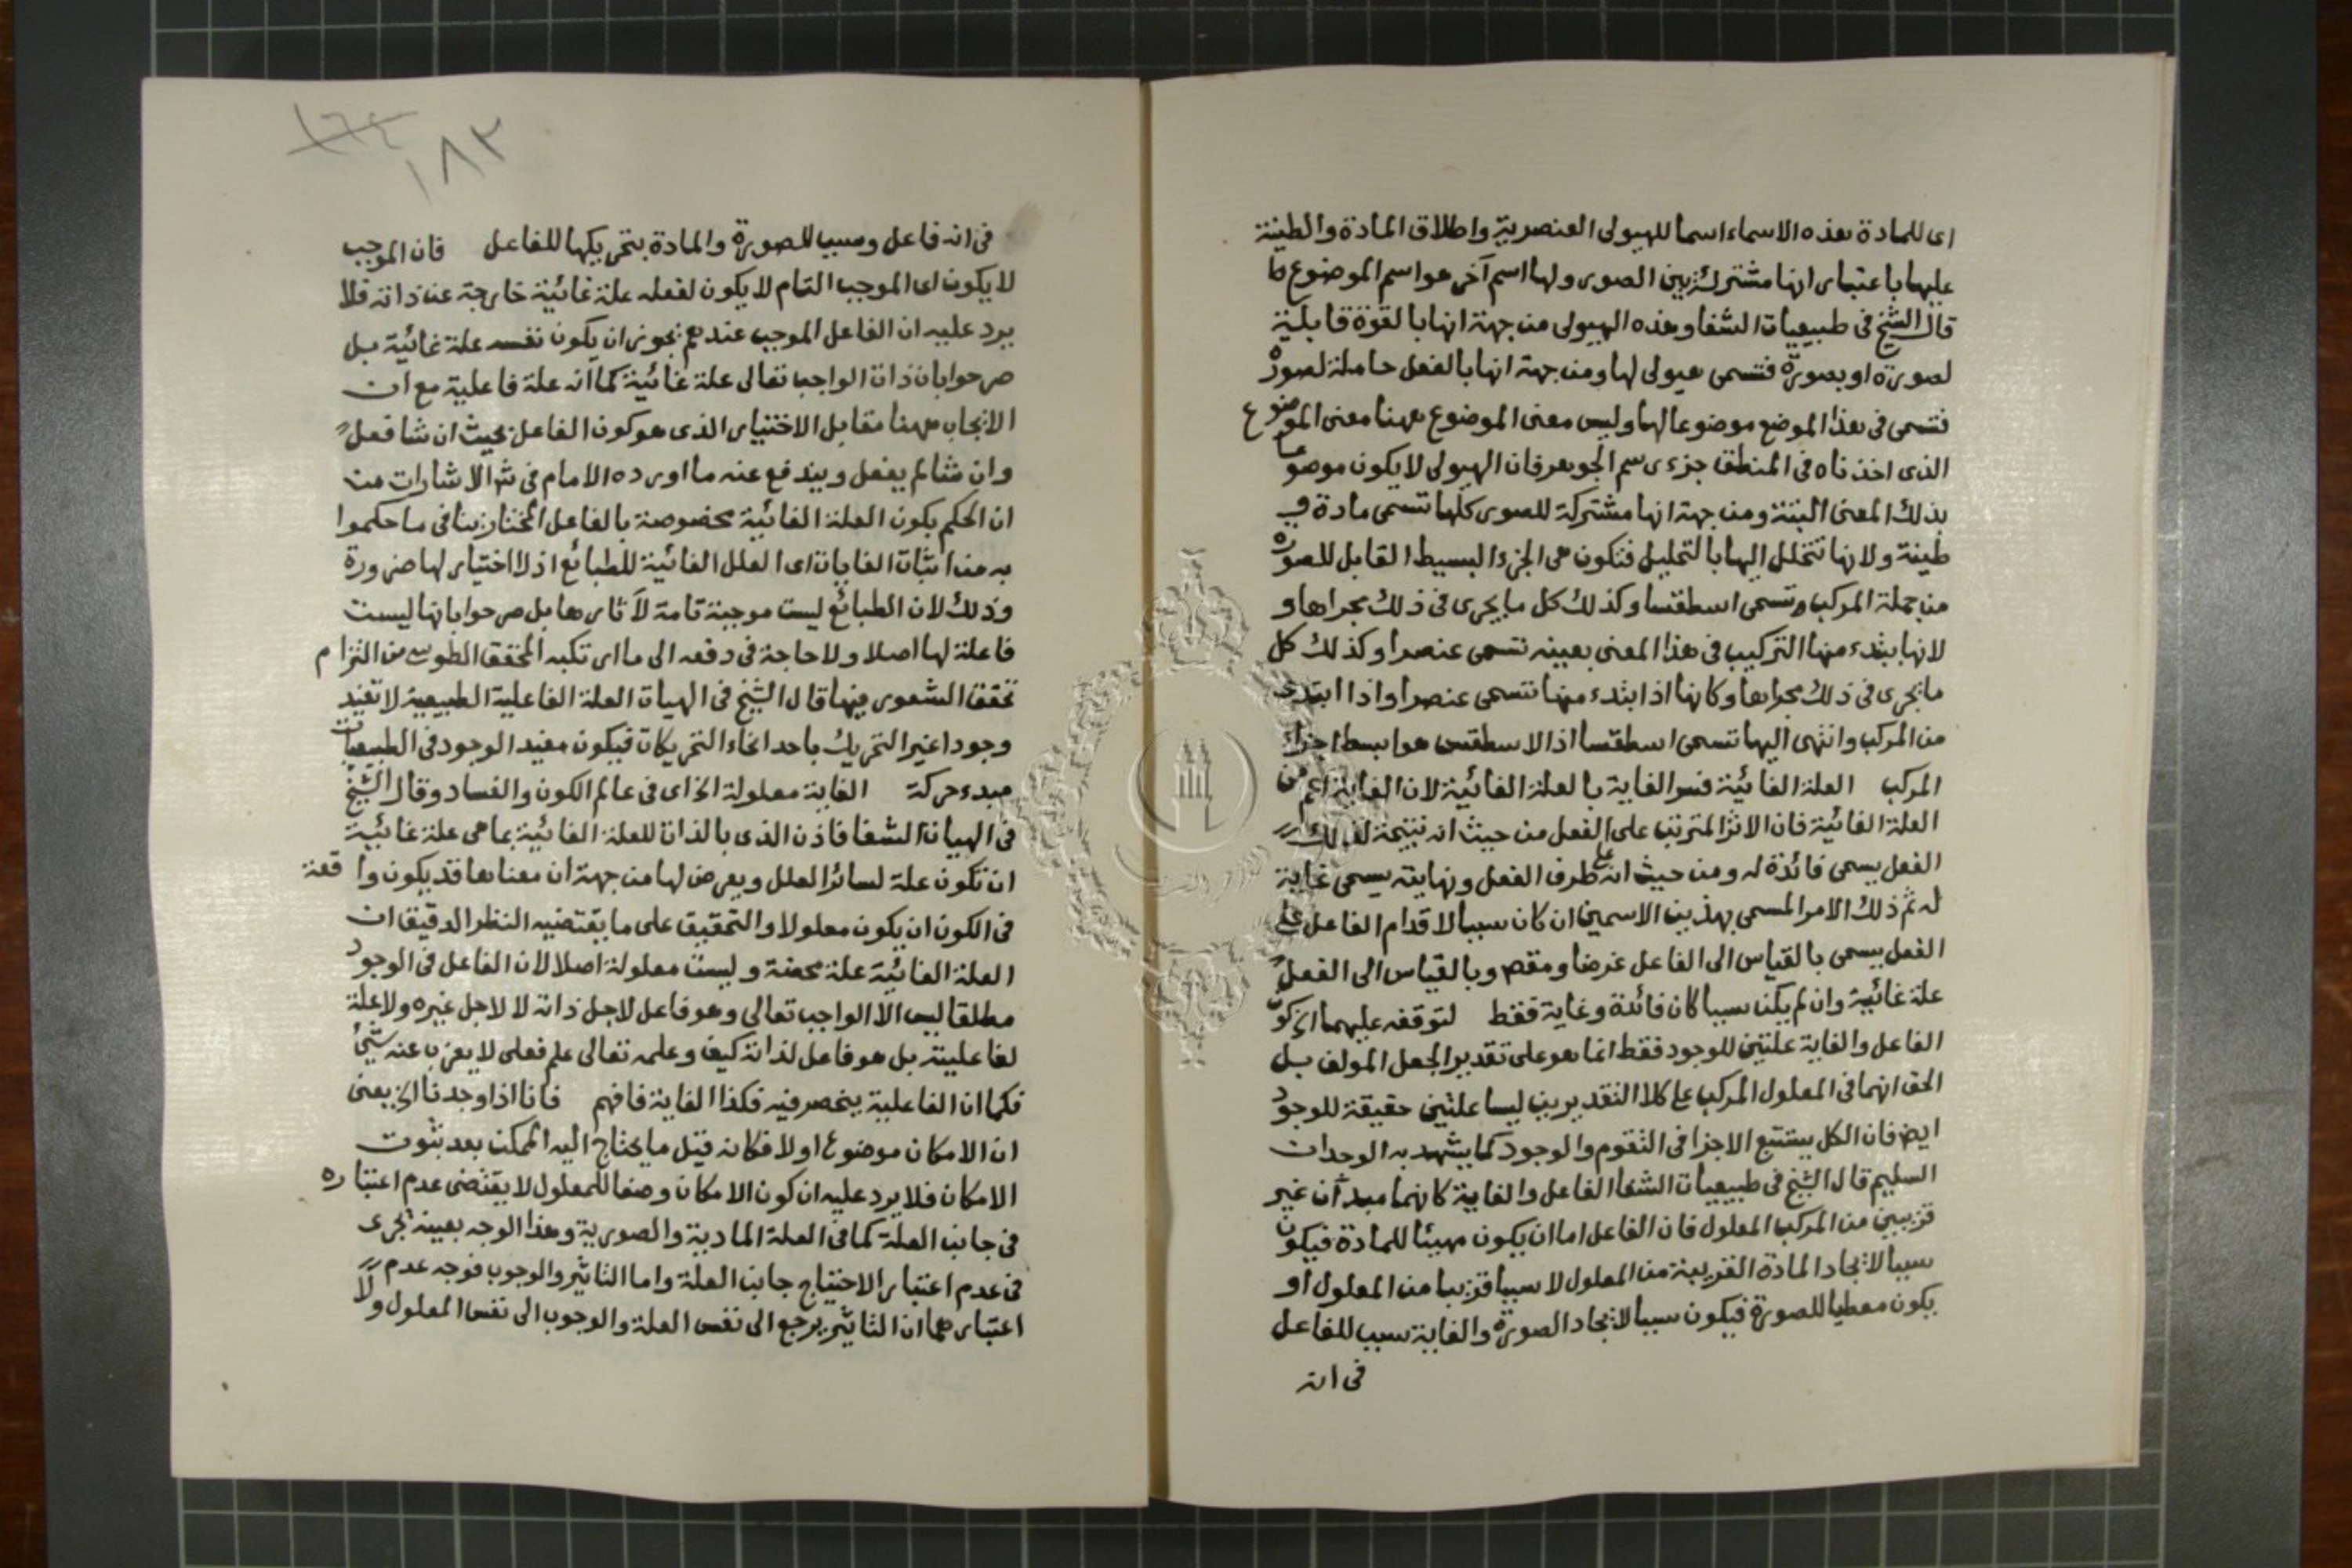 اى للمادة هذه الاسماء اسما للهيولى العنصرية واطلاق المادة والطينة
عليها باعتبار انها مشتركة بين الصور ولها اسم آخر هو اسم الموضوع كما
قال الشيخ فى طبيعيات الشفا وهذه الهيولى من جهة انها بالقوة قابلة
لصورة او بصورة فتسمى هيولى لها ومن جهة انها بالفعل حاملة لصورة
فتسمى فى هذا الموضع موضوعا لها وليس معنى الموضوع ههنا معنى الموضوع
الذى اخذناه فى المنطق جزء رسم الجوهر فان الهيولى لا يكون موضوعا
بذلك المعنى البتة ومن جهة انها مشتركة للصور كلها تسمى مادة و
طينة ولانها تتحلل اليها بالتحليل فتكون هى الجزء البسيط القابل للصورة
من جملة المركب وتسمى اسطقسا وكذلك كل ما يجرى فى ذلك مجراها و
لانها يبتدء منها التركيب فى هذا المعنى بعينه تسمى عنصرا وكذلك كل
ما يجرى فى ذلك مجراها وكانها اذا ابتدء منها تتسمى عنصرا واذا ابتدى
من المركب وانتهى اليها تتسمى اسطقسا اذ الاسطقس هو ابسط اجزاء
المركب العلة الغائية فسر الغاية بالعلة الغائية لان الغاية اعم من
العلة الغائية فان الاثر المترتب على الفعل من حيث انه نتيجة لذلك
الفعل يسمى فائدة له ومن حيث انه على طرف الفعل ونهايته يسمى غاية
له ثم ذلك الامر المسمى بهذين الاسمين ان كان سببا لاقدام الفاعل على
الفعل يسمى بالقياس الى الفاعل غرضا ومقص وبالقياس الى الفعل
علة غائية وان لم يكن سببا كان فائدة وغاية فقط لتوقفه عليهما الخ كون
الفاعل والغاية علتين للوجود فقط انما هو على تقدير الجعل المولف بل
الحق انهما فى المعلول المركب على كلا التقديرين ليسا علتين حقيقة للوجود
ايض فان الكل يستتبع الاجزا فى التقوم والوجود كما يشهد به الوجدان
السليم قال الشيخ فى طبيعيات الشفا الفاعل والغاية كانهما مبدآن غير
قريبين من المركب المعلول فان الفاعل اما ان يكون مهيئا للمادة فيكون
سببا لايجاد المادة القريبة من المعلول لا سببا قريبا من المعلول او
يكون معطيا للصورة فيكون سببا لايجاد الصورة والغاية سبب للفاعل
فى انه
١٨٢
فى انه فاعل وسبب للصورة والمادة بتحريكها للفاعل فان الموجب
لا يكون اى الموجب التام لا يكون لفعله علة غائية خارجة عن ذاته فلا
يرد عليه ان الفاعل الموجب عندهم يجوز ان يكون نفسه علة غائية بل
صرحوا بان ذات الواجب تعالى علة غائية كما انه علة فاعلية مع ان
الايجاب ههنا مقابل الاختيار الذى هو كون الفاعل بحيث ان شا فعل
وان شا لم يفعل ويندفع عنه ما اورده الامام فى ش الاشارات من
ان الحكم بكون العلة الغائية مخصوصة بالفاعل المختار ينافى ما حكموا
به من اثبات الغايات اى العلل الغائية للطبائع اذ لا اختيار لها ضرورة
وذلك لان الطبائع ليست موجبة تامة لآثارها بل صرحوا بانها ليست
فاعلة لها اصلا ولا حاجة فى دفعه الى ما ارتكبه المحقق الطوسى من التزام
تحقق الشعور فيها قال الشيخ فى الهيات العلة الفاعلية الطبيعية لا تفيد
وجودا غير التحريك باحد انحاء التحريكات فيكون مفيد الوجود فى الطبيعيات
مبدء حركة الغاية معلولة الخ اى فى عالم الكون والفساد وقال الشيخ
فى الهيات الشفا فاذن الذى بالذات للعلة الغائية بما هى علة غائية
ان تكون علة لسائر العلل ويعرض لها من جهة ان معناها قد يكون واقعة
فى الكون ان يكون معلولا والتحقيق على ما يقتضيه النظر الدقيق ان
العلة الغائية علة محضة وليست معلولة اصلا لان الفاعل فى الوجود
مطلقا ليس الا الواجب تعالى وهو فاعل لاجل ذاته لا لاجل غيره ولا علة
لفاعليته بل هو فاعل لذاته كيف وعلمه تعالى علم فعلى لا يعزب عنه شئ
فكما ان الفاعلية ينحصر فيه فكذا الغاية فافهم فانا اذا وجدنا الخ يعنى
ان الامكان موضوع اولا فكانه قيل ما يحتاج اليه الممكن بعد ثبوت
الامكان فلا يرد عليه ان كون الامكان وصفا للمعلول لا يقتضى عدم اعتباره
فى جانب العلة كما فى العلة المادية والصورية وهذا الوجه بعينه يجرى
فى عدم اعتبار الاحتياج جانب العلة واما التاثير والوجوب فوجه عدم
اعتبارهما ان التاثير يرجع الى نفس العلة والوجوب الى نفس المعلول ولا